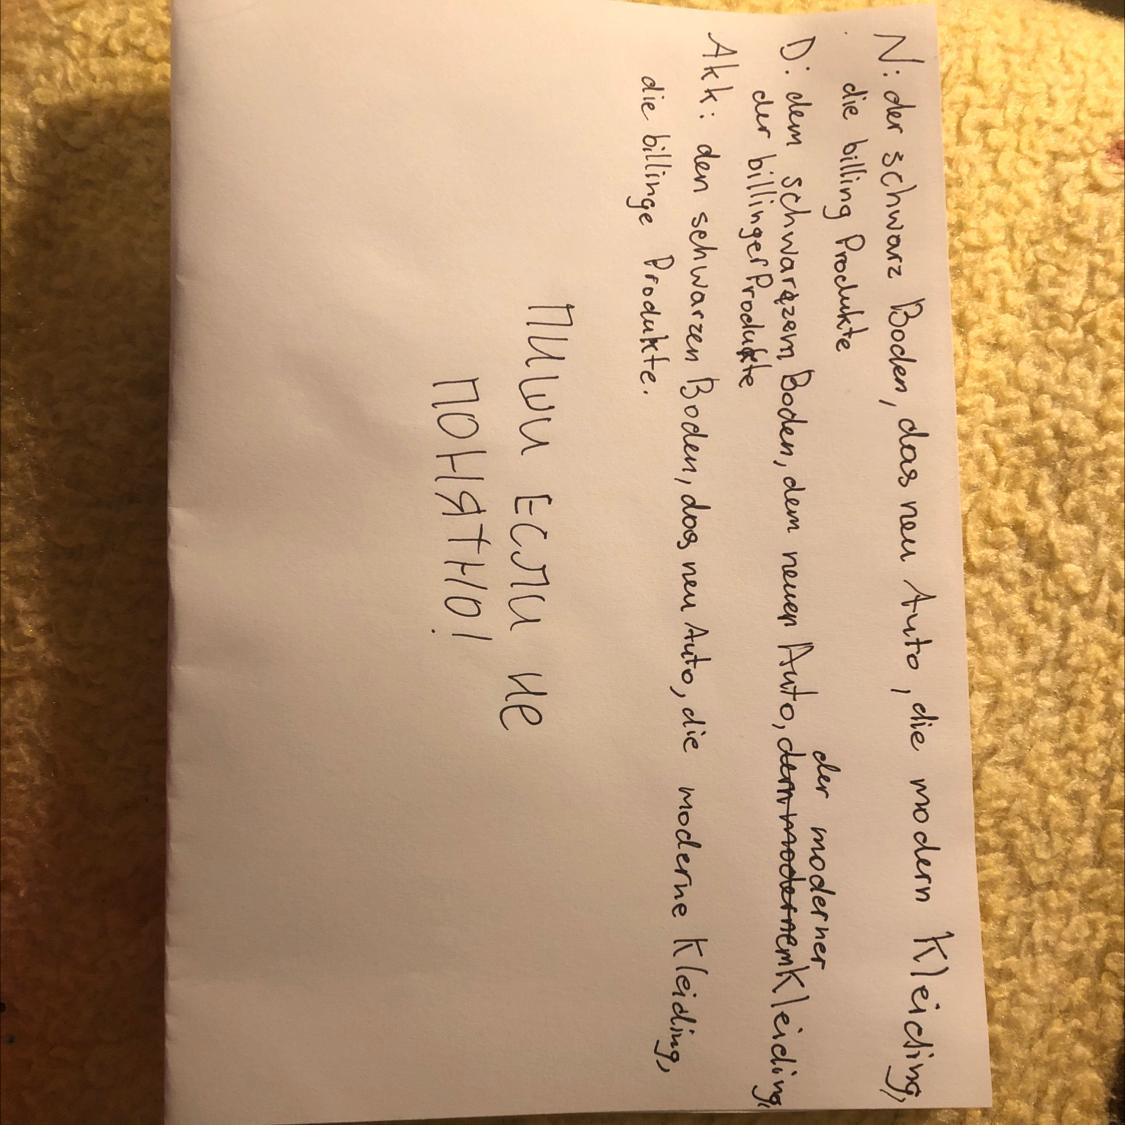 N: der schwarz Boden, das neu Auto, die modern Kleiding,
die billing Produkte
der moderner
D: dem schwarzem Boden, dem neuen Auto, dem modernem Kleiding,
der billinger Produkte
Akk: den schwarzen Boden, das neu Auto, die moderne Kleiding,
die billinge Produkte.
ПИШИ ЕСЛИ НЕ
ПОНЯТНО!